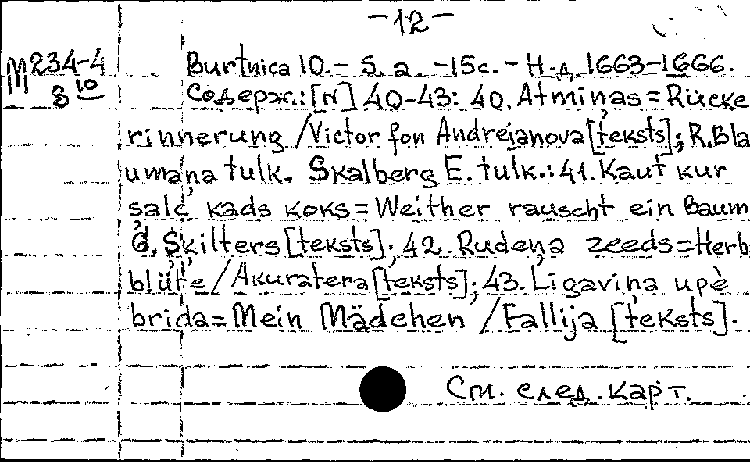 -12-
M 234-4 Burtnica 10.- S. a. -15с. - Н.д. 1663-1666.
8 10 Содерж.: [N] 40-43: 40. Atmiņas = Rücke
rinnerung / Victor fon Andrejanova [teksts]; R. Bla
umaņa tulk. Skalberg E. tulk.: 41. Kaut kur
salc kads koks = Weither rauscht ein Baum
G. Šķilters [teksts]; 42. Rudeņa zeeds = Herb
blüte / Akuratera [teksts]; 43. Ligaviņa upè
brida = Mein Mädchen / Fallija [teksts].
См. след. карт.